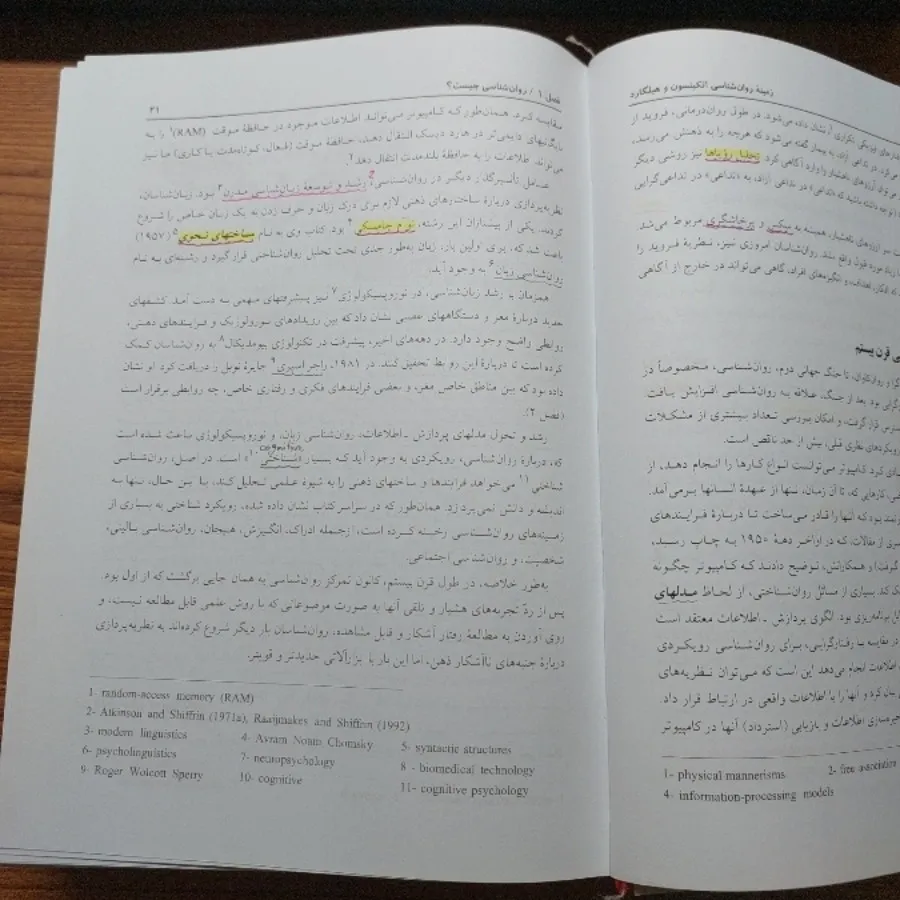 زمینهٔ روان‌شناسی اتکینسون و هیلگارد
نشان داده می‌شود. در طول روان‌درمانی، فروید از
به بیمار گفته می‌شود که هرچه را به ذهنش می‌رسد،
تحلیل رؤیاها نیز روشی دیگر
مربوط می‌شد.
روان‌شناسان امروزی نیز، نظریهٔ فروید را
انگیزه‌های افراد، گاهی می‌تواند در خارج از آگاهی
قرن بیستم
تا جنگ جهانی دوم، روان‌شناسی، مخصوصاً در
بعد از جنگ، علاقه به روان‌شناسی افزایش یافت.
قرار گرفت، و امکان بررسی تعداد بیشتری از مشکلات
رویکردهای نظری قبلی، بیش از حد ناقص است.
کرد کامپیوتر می‌توانست انواع کارها را انجام دهد، از
کارهایی که، تا آن زمان، تنها از عهدهٔ انسانها برمی‌آمد.
بود که آنها را قادر می‌ساخت تا دربارهٔ فرایندهای
از مقالات، که در اواخر دههٔ ۱۹۵۰ به چاپ رسید،
و همکارانش، توضیح دادند که کامپیوتر چگونه
کند بسیاری از مسائل روان‌شناختی، از لحاظ مدلهای
برنامه‌ریزی بود. الگوی پردازش ـ اطلاعات معتقد است
در مقایسه با رفتارگرایی، برای روان‌شناسی رویکردی
اطلاعات انجام می‌دهد این است که می‌توان نظریه‌های
بیان کرد و آنها را با اطلاعات واقعی در ارتباط قرار داد.
اطلاعات و بازیابی (استرداد) آنها در کامپیوتر
1- physical mannerisms
2- free association
4- information-processing models
فصل ۱ / روان‌شناسی چیست؟
۴۱
مقایسه کرد. همان‌طور که کامپیوتر می‌تواند اطلاعات موجود در حافظهٔ موقت (RAM)۱ را به
بایگانیهای دایمی‌تر در هارد دیسک انتقال دهد، حافظهٔ موقت (فعال، کوتاه‌مدت یا کاری) ما نیز
می‌تواند اطلاعات را به حافظهٔ بلندمدت انتقال دهد۲.
عامل تأثیرگذار دیگر در روان‌شناسی، رشد و توسعهٔ زبان‌شناسی مدرن۳ بود. زبان‌شناسان،
نظریه‌پردازی دربارهٔ ساختارهای ذهنی لازم برای درک زبان و حرف زدن به یک زبان خاص را شروع
کردند. یکی از پیشتازان این رشته، نوام چامسکی۴ بود. کتاب وی به نام ساختهای نحوی۵ (۱۹۵۷)
باعث شد که، برای اولین بار، زبان به‌طور جدی تحت تحلیل روان‌شناختی قرار گیرد و رشته‌ای به نام
روان‌شناسی زبان۶ به وجود آید.
همزمان با رشد زبان‌شناسی، در نوروپسیکولوژی۷ نیز پیشرفتهای مهمی به دست آمد. کشفهای
جدید دوبارهٔ مغز و دستگاههای عصبی نشان داد که بین رویدادهای نورولوژیک و فرایندهای ذهنی،
روابطی واضح وجود دارد. در دهه‌های اخیر، پیشرفت در تکنولوژی بیومدیکال۸ به روان‌شناسان کمک
کرده است تا دربارهٔ این روابط تحقیق کنند. در ۱۹۸۱، راجر اسپری۹ جایزهٔ نوبل را دریافت کرد. او نشان
داده بود که بین مناطق خاص مغز، و بعضی فرایندهای فکری و رفتاری خاص، چه روابطی برقرار است
(فصل ۲).
رشد و تحول مدلهای پردازش ـ اطلاعات، روان‌شناسی زبان، و نوروپسیکولوژی باعث شده است
که، دربارهٔ روان‌شناسی، رویکردی به وجود آید که بسیار «شناختی۱۰» است. در اصل، روان‌شناسی
شناختی۱۱ می‌خواهد فرایندها و ساختهای ذهنی را به شیوهٔ علمی تحلیل کند، با این حال، تنها به
اندیشه و دانش نمی‌پردازد. همان‌طور که در سراسر کتاب نشان داده شده، رویکرد شناختی به بسیاری از
زمینه‌های روان‌شناسی رخنه کرده است، ازجمله ادراک، انگیزش، هیجان، روان‌شناسی بالینی،
شخصیت، و روان‌شناسی اجتماعی.
به‌طور خلاصه، در طول قرن بیستم، کانون تمرکز روان‌شناسی به همان جایی برگشت که از اول بود.
پس از ردّ تجربه‌های هشیار و تلقی آنها به صورت موضوعاتی که با روش علمی قابل مطالعه نیست، و
روی آوردن به مطالعهٔ رفتار آشکار و قابل مشاهده، روان‌شناسان بار دیگر شروع کرده‌اند به نظریه‌پردازی
دربارهٔ جنبه‌های ناآشکار ذهن، اما این بار با ابزارآلاتی جدیدتر و قویتر.
1- random-access memory (RAM)
2- Atkinson and Shiffrin (1971a), Raaijmakes and Shiffrin (1992)
3- modern linguistics 4- Avram Noam Chomsky 5- syntactic structures
6- psycholinguistics 7- neuropsychology 8 - biomedical technology
9- Roger Wolcott Sperry 10- cognitive 11- cognitive psychology